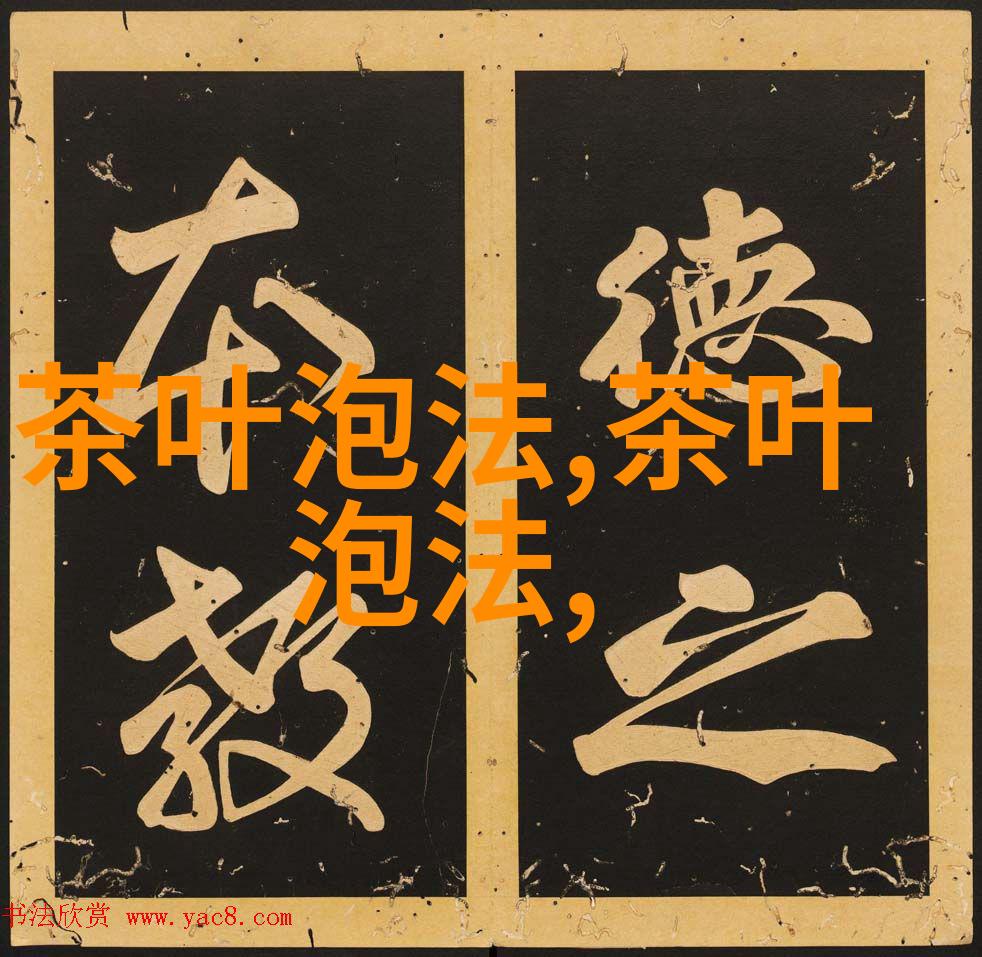 德之
本教
茶叶泡法,茶叶
泡法,
书法欣赏 www.yac8.com